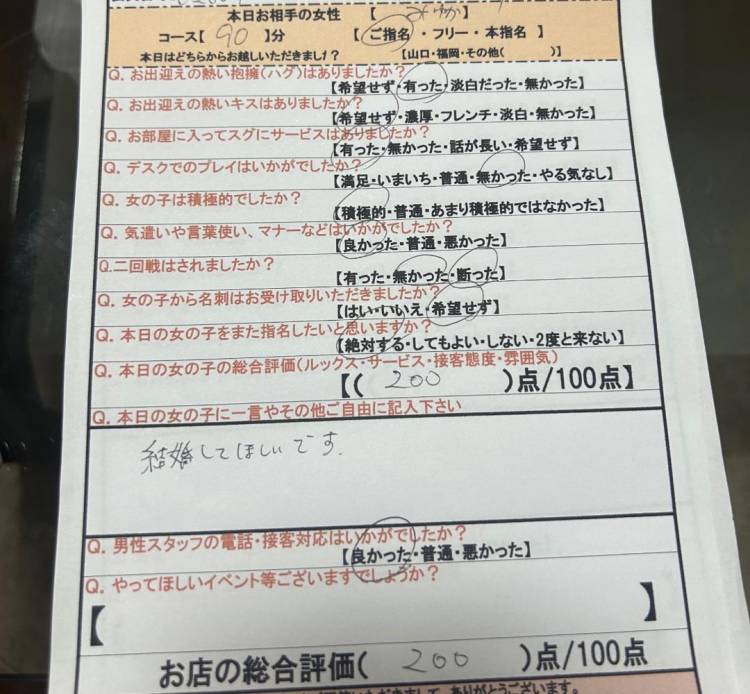 本日お相手の女性 【 みゆか 】
コース【 90 】分 【 ご指名・フリー・本指名】
本日はどちらからお越しいただきました? 【山口・福岡・その他( )】
Q. お出迎えの熱い抱擁(ハグ)はありましたか?
【希望せず・有った・淡白だった・無かった】
Q. お出迎えの熱いキスはありましたか?
【希望せず・濃厚・フレンチ・淡白・無かった】
Q. お部屋に入ってスグにサービスはありましたか?
【有った・無かった・話が長い・希望せず】
Q. デスクでのプレイはいかがでしたか?
【満足・いまいち・普通・無かった・やる気なし】
Q. 女の子は積極的でしたか?
【積極的・普通・あまり積極的ではなかった】
Q. 気遣いや言葉使い、マナーなどはいかがでしたか?
【良かった・普通・悪かった】
Q.二回戦はされましたか?
【有った・無かった・断った】
Q. 女の子から名刺はお受け取りいただきましたか?
【はい・いいえ・希望せず】
Q. 本日の女の子をまた指名したいと思いますか?
【絶対する・してもよい・しない・2度と来ない】
Q. 本日の女の子の総合評価(ルックス・サービス・接客態度・雰囲気)
【( 200 )点/100点】
Q. 本日の女の子に一言やその他ご自由に記入下さい
結婚してほしいです.
Q. 男性スタッフの電話・接客対応はいかがでしたか?
【良かった・普通・悪かった】
Q. やってほしいイベント等ございますでしょうか?
【 】
お店の総合評価( 200 )点/100点
ありがとうございます。